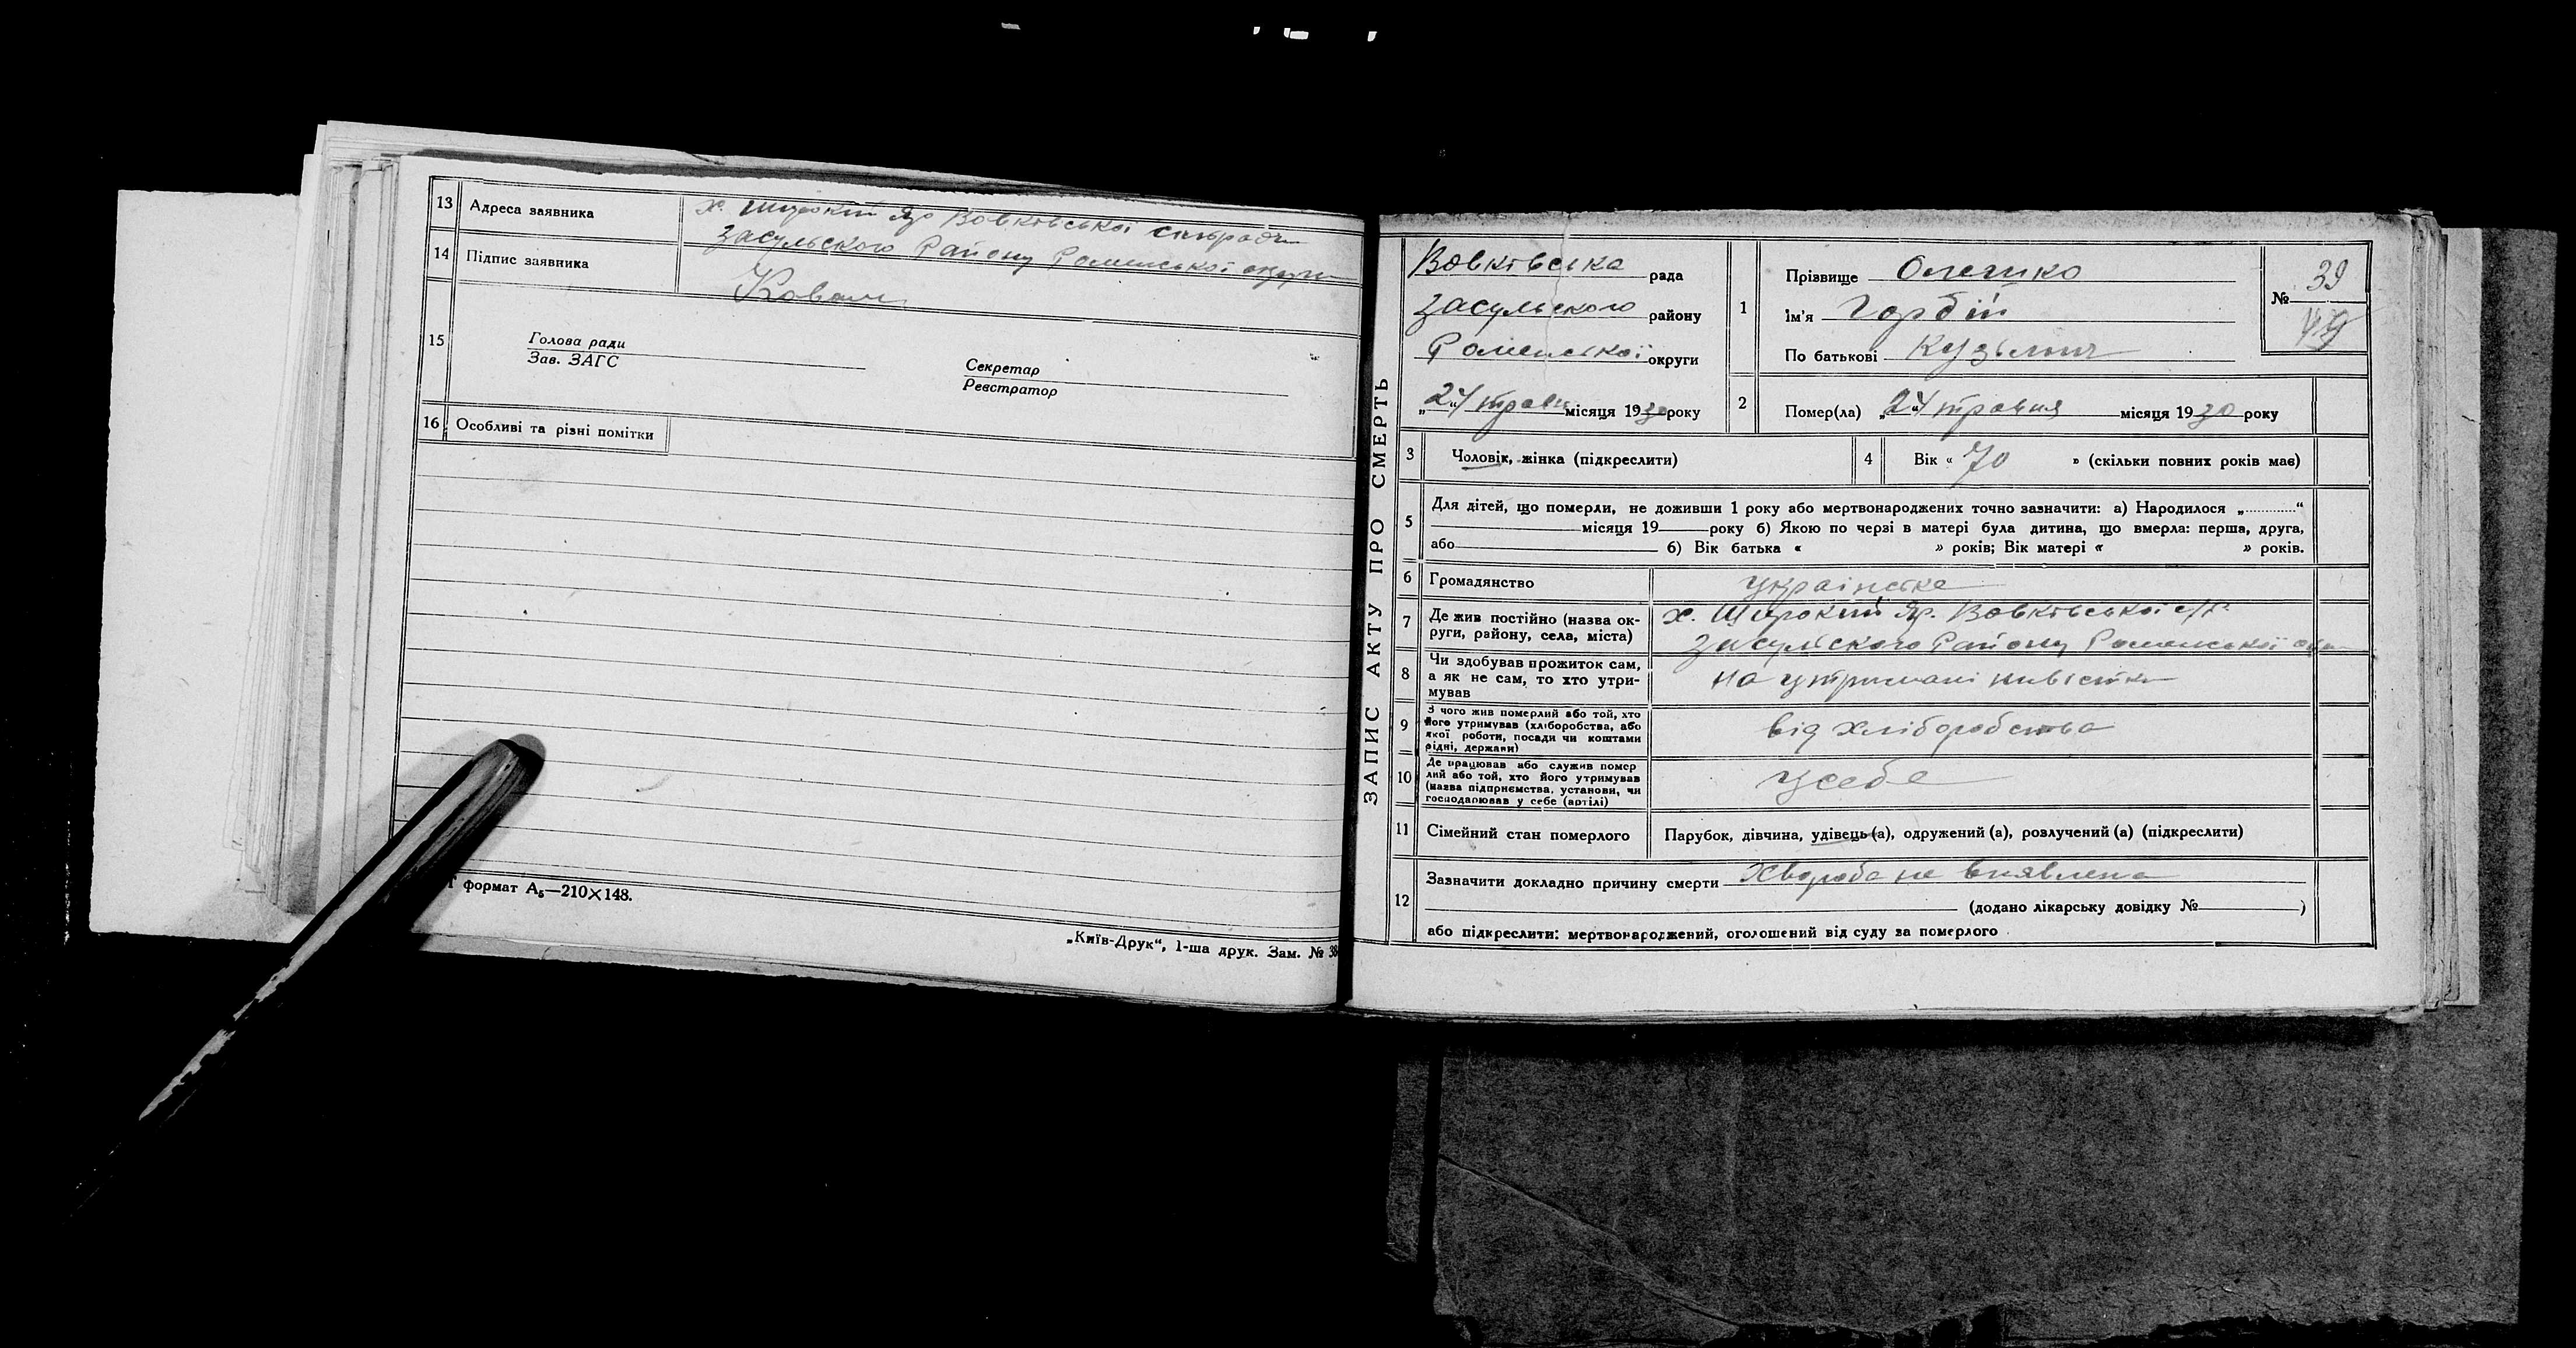 13 Адреса заявника х. Широкий Яр Вовківської сільради
Засульского Району Роменської округи
14 Підпис заявника Коваль
15 Голова ради
Зав. ЗАГС
Секретар
Реєстратор
16 Особливі та різні помітки
формат А₅—210×148.
„Київ-Друк“, 1-ша друк. Зам. № 38
ЗАПИС АКТУ ПРО СМЕРТЬ
Вовківська рада
Засульского району
Роменської округи
„24“ травн місяця 1930 року
1 Прізвище Олешко
Ім'я Горбій
По батькові Кузьмич
№ 39
49
2 Помер(ла) „24“ травня місяця 1930 року
3 Чоловік, жінка (підкреслити)
4 Вік « 70 » (скільки повних років має)
5 Для дітей, що померли, не доживши 1 року або мертвонароджених точно зазначити: а) Народилося „............“
місяця 19 року б) Якою по черзі в матері була дитина, що вмерла: перша, друга,
або б) Вік батька « » років; Вік матері « » років.
6 Громадянство українське
7 Де жив постійно (назва ок-
руги, району, села, міста)
х. Широкий Яр. Вовківської с/р.
Засульского Району Роменської окр
8 Чи здобував прожиток сам,
а як не сам, то хто утри-
мував
на утримані невістки
9 З чого жив померлий або той, хто
його утримував (хліборобства, або
якої роботи, посади чи коштами
рідні, держави)
від хліборобства
10 Де працював або служив помер
лий або той, хто його утримував
(назва підприємства, установи, чи
господарював у себе (артілі)
усебе
11 Сімейний стан померлого Парубок, дівчина, удівець (а), одружений (а), розлучений (а) (підкреслити)
12 Зазначити докладно причину смерти Хвороба не виявлена
(додано лікарську довідку № )
або підкреслити: мертвонароджений, оголошений від суду за померлого